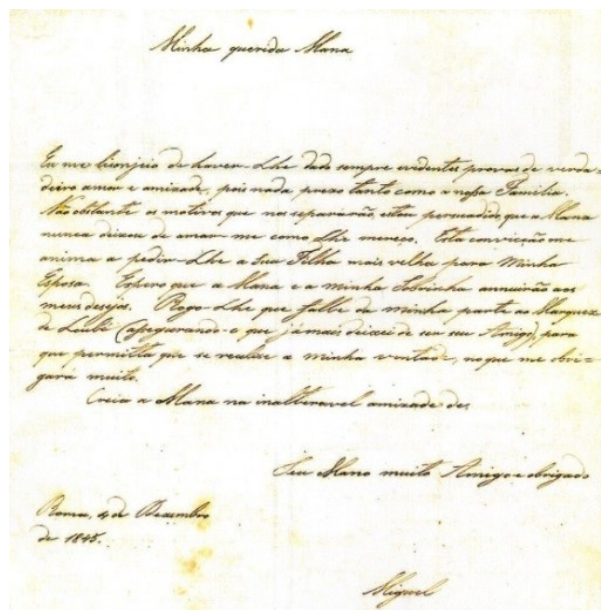 Minha querida Mana
Eu me lisonjeio de haver-Lhe dado sempre evidentes provas de verda=
deiro amor e amizade, pois nada prezo tanto como a nossa Familia.
Não obstante os motivos que nos separárão, estou persuadido que a Mana
nunca deixou de amar-me como Lhe mereço. Esta convicção me
anima a pedir-Lhe a Sua Filha mais velha para Minha
Esposa. Espero que a Mana e a minha Sobrinha annuirão aos
meus desejos. Rogo-Lhe que falle da minha parte ao Marquez
de Loulé (assegurando-o que jámais deixei de ser seu Amigo), para
que permitta que se realize a minha vontade, no que me obri=
gará muito.
Creia a Mana na inalteravel amizade de
Seu Mano muito Amigo e obrigado
Roma, 4 de Dezembro
de 1845.
Miguel